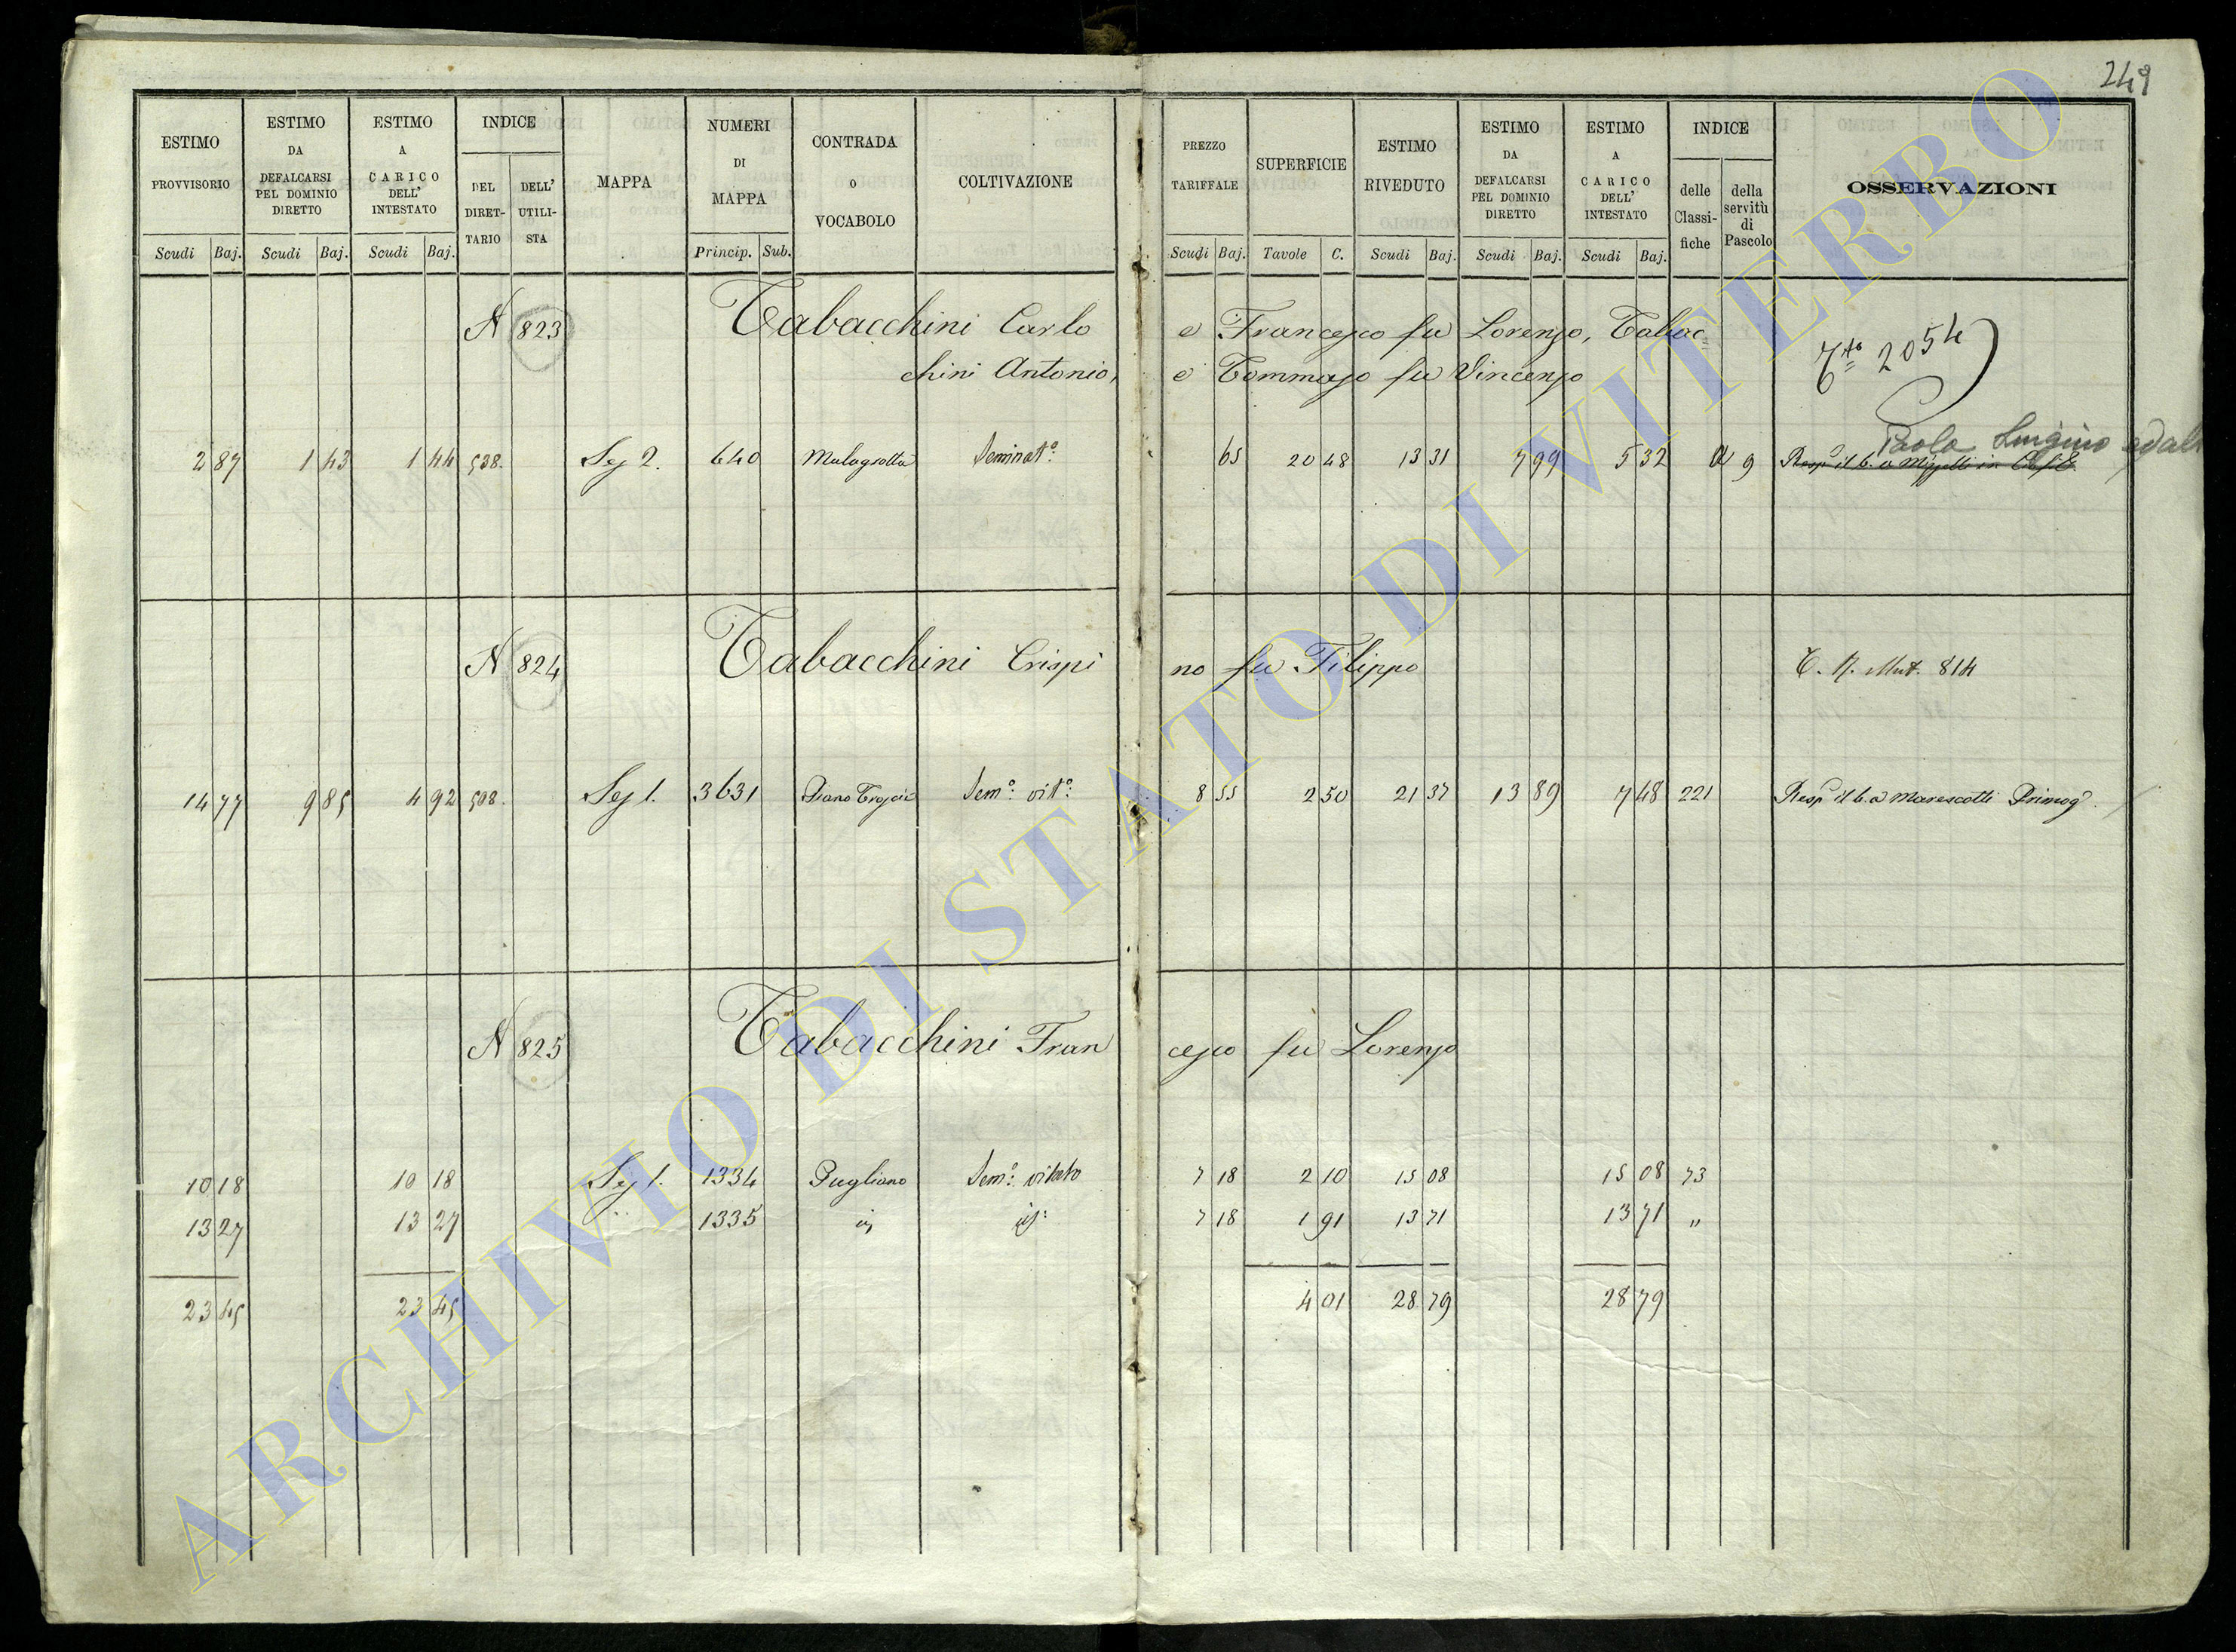 249
ESTIMO PROVVISORIO | ESTIMO DA DEFALCARSI PEL DOMINIO DIRETTO | ESTIMO A CARICO DELL' INTESTATO | INDICE | MAPPA | NUMERI DI MAPPA | CONTRADA O VOCABOLO | COLTIVAZIONE | PREZZO TARIFFALE | SUPERFICIE | ESTIMO RIVEDUTO | ESTIMO DA DEFALCARSI PEL DOMINIO DIRETTO | ESTIMO A CARICO DELL' INTESTATO | INDICE | OSSERVAZIONI
DEL DIRETTARIO | DELL' UTILISTA | delle Classifiche | della servitù di Pascolo
Scudi Baj. | Scudi Baj. | Scudi Baj. | Princip. Sub. | Scudi Baj. | Tavole C. | Scudi Baj. | Scudi Baj. | Scudi Baj.
N 823 Tabacchini Carlo e Francesco fu Lorenzo, Tabac
chini Antonio, e Tommaso fu Vincenzo
2054
Paolo Luigino
2 87 | 1 43 | 1 44 | 538. | Sez 2. | 640 | Seminat.o | 65 | 20 48 | 13 31 | 7 99 | 5 32 | a 9
N 824 Tabacchini Crispi no fu Filippo
C. R. Mut. 814
14 77 | 9 85 | 4 92 | 508. | Sez 1. | 3631 | Sem.o vit.o | 8 55 | 2 50 | 21 37 | 13 89 | 7 48 | 221 | Resp il b. a Marescotti Primog.
N 825 Tabacchini Fran cesco fu Lorenzo
10 18 | 10 18 | Sez 1. | 1334 | Pugliano | Sem.o vitato | 7 18 | 2 10 | 15 08 | 15 08 | 73
13 27 | 13 27 | 1335 | 7 18 | 1 91 | 13 71 | 13 71 | "
23 45 | 23 45 | 4 01 | 28 79 | 28 79
ARCHIVIO DI STATO DI VITERBO